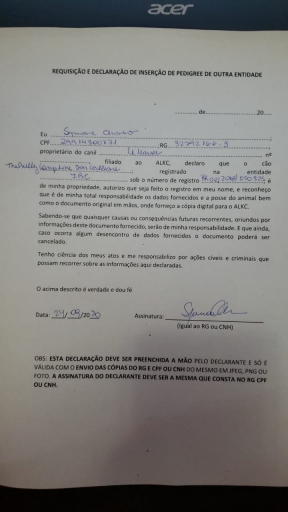 acer
REQUISIÇÃO E DECLARAÇÃO DE INSERÇÃO DE PEDIGREE DE OUTRA ENTIDADE
de 20
Eu
CPF RG
proprietário do canil nº
filiado ao ALKC, declaro que o cão
registrado na entidade
sob o número de registro é
de minha propriedade, autorizo que seja feito o registro em meu nome, e reconheço
que é de minha total responsabilidade os dados fornecidos e a posse do animal bem
como o documento original em mãos, onde forneço a cópia digital para o ALKC.
Sabendo-se que quaisquer causas ou consequências futuras recorrentes, oriundos por
informações deste documento fornecido, serão de minha responsabilidade. E que ainda,
caso ocorra algum desencontro de dados fornecidos o documento poderá ser
cancelado.
Tenho ciência dos meus atos e me responsabilizo por ações cíveis e criminais que
possam recorrer sobre as informações aqui declaradas.
O acima descrito é verdade e dou fé
Data: 24/09/2020 Assinatura:
(igual ao RG ou CNH)
OBS: ESTA DECLARAÇÃO DEVE SER PREENCHIDA A MÃO PELO DECLARANTE E SÓ É
VÁLIDA COM O ENVIO DAS CÓPIAS DO RG E CPF OU CNH DO MESMO EM JPEG, PNG OU
FOTO. A ASSINATURA DO DECLARANTE DEVE SER A MESMA QUE CONSTA NO RG CPF
OU CNH.